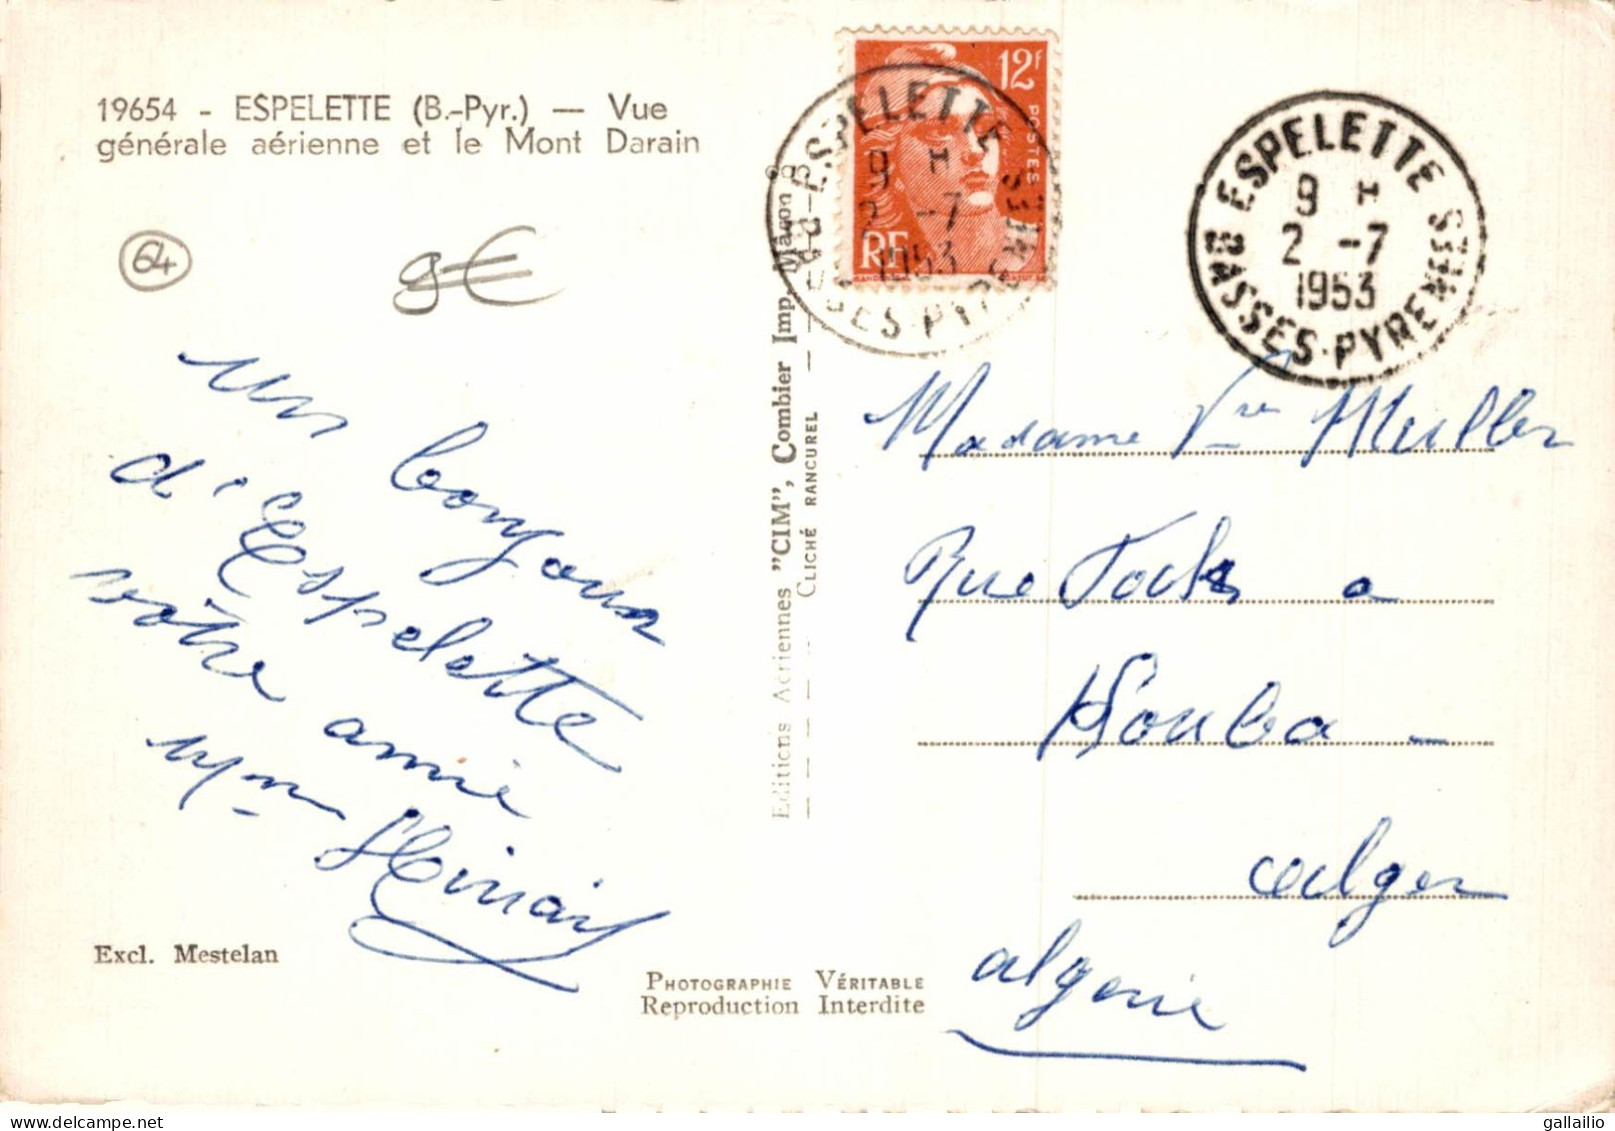 19654 - ESPELETTE (B.-Pyr.) — Vue
générale aérienne et le Mont Darain
64
9€
un bonjour
d'Espelette
votre amie
Mme
Excl. Mestelan
Editions Aériennes "CIM", Combier Imp. Mâcon
CLICHÉ RANCUREL
PHOTOGRAPHIE VÉRITABLE
Reproduction Interdite
12F
POSTES
RF
ESPELETTE
9 H
2 -7
1953
BASSES-PYRENEES
ESPELETTE
9 H
2 -7
1953
BASSES-PYRENEES
Madame Vve Muller
Rue
Kouba -
Alger
algerie
gallailio